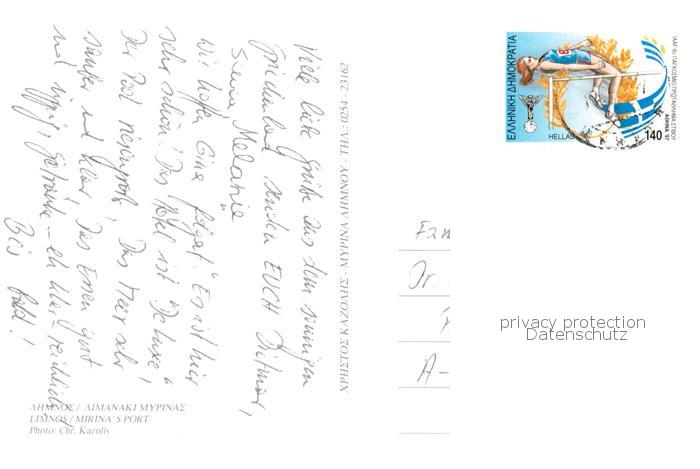 Viele liebe Grüße aus dem sonnigen
Griechenland senden EUCH Dietmar,
Silena Melanie
Wir hoffen Eine folgt! "Es ist hier
sehr schön! Das Hotel ist "De Luxe"
Der Pool riesengroß, Das Meer sehr
sauber und klar. Das Essen gut
und üppig, Getränke – eh klar – reichlich!
Bis bald!
ΧΡΗΣΤΟΣ ΚΑΖΟΛΗΣ - ΜΥΡΙΝΑ ΛΗΜΝΟΥ - ΤΗΛ.: 0254 - 23162
ΛΗΜΝΟΣ / ΛΙΜΑΝΑΚΙ ΜΥΡΙΝΑΣ
LIMNOS / MIRINA'S PORT
Photo: Chr. Kazolis
ΕΛΛΗΝΙΚΗ ΔΗΜΟΚΡΑΤΙΑ
HELLAS
140
ΑΘΗΝΑ '97
IAAF-6ο ΠΑΓΚΟΣΜΙΟ ΠΡΩΤΑΘΛΗΜΑ ΣΤΙΒΟΥ
Fam
Dr.
A-
privacy protection
Datenschutz